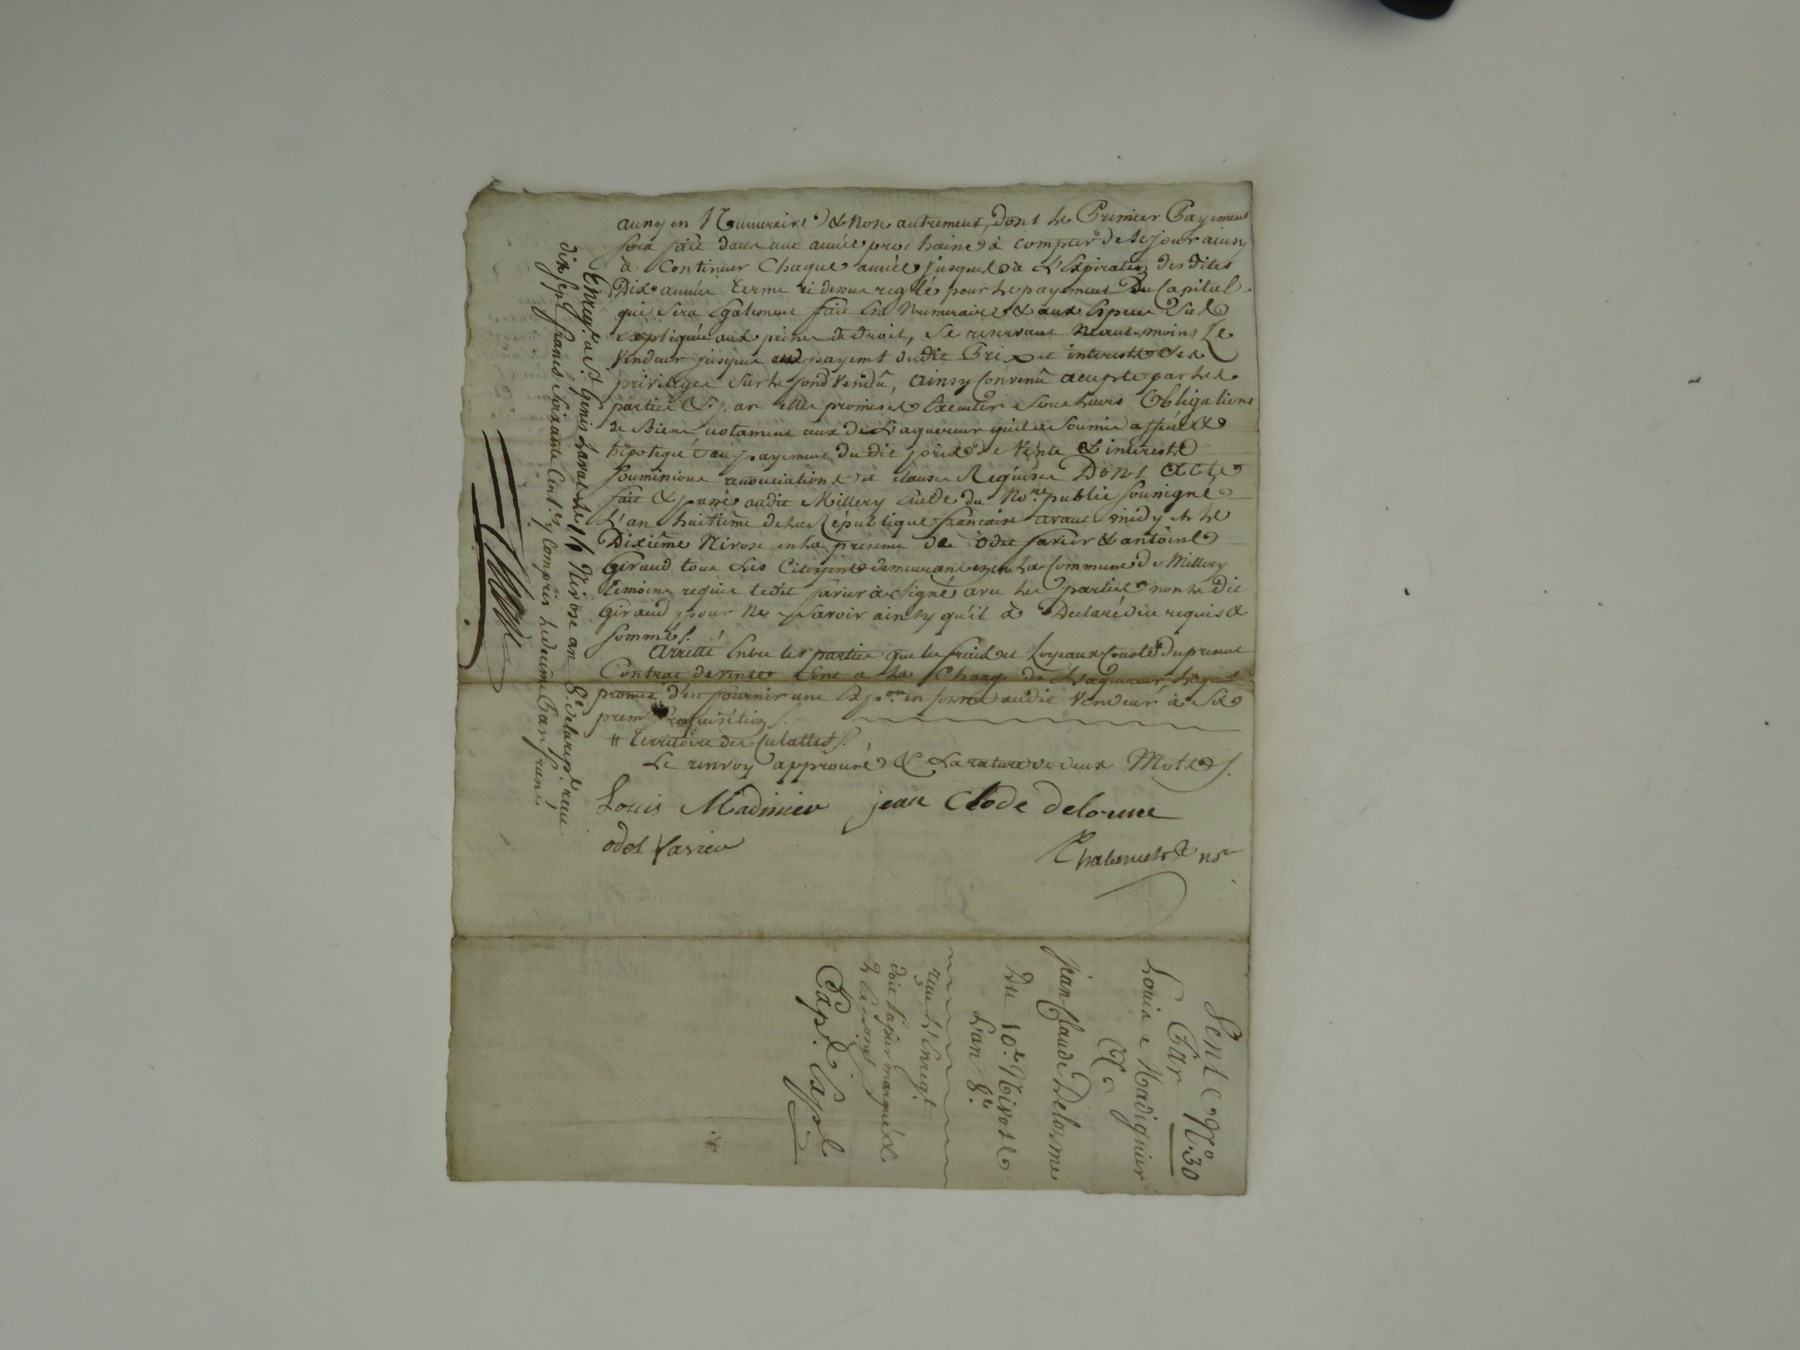 aussy en Numeraire & non autrement, dont le Premier Payement
sera fait dans une année prochaine à compter de ce jour ainsy
à Continuer Chaque année jusques à L'Expiration des dites
Dix année terme ci dessus reglé pour le payement Du Capital
qui sera Egalement fait En Numeraire & aux Espece Sus
expliquée aux peines de droit, Se reservant neant-moins Le
Vendeur jusques au payemt dudit Prix et interest ses
privileges sur le fond Vendû, ainsy Convenû accepté par les
parties & par elles promis Executer sous Leurs Obligations
de Biens notament ceux de L'aquereur qu'il a soumis affecté &
hipotequé au payement du dit prix de Vente & interest
soumissions renonciations et clauses Requises Dont Acte
fait & passé audit Millery Etude du Nore public soussigné
L'an huitième de la République francaise avant midy & le
Dixième Nivose en la presence de Odet Farier & antoine
Giraud tous deux Citoyens demeurant en la Commune de Millery
temoins requis ledit Farier a signé avec les parties non le dit
Giraud pour ne savoir ainsy qu'il à Déclaré de ce requis &
sommé /.
Arretté Entre les parties que les fraid et Loyeaux Couste du present
Contrat de vente sont a la Charge de L'aquereur lequel
promet d'en fournir une Expon en forme audit Vendeur à Sa
prem Requisition /.
# territoire des Culattes /.
Le renvoy approuvé & La rature de deux Mots /.
Louis Madinier jean Clode delorme
odet farier
nore
Enregt. a St. Genis Laval le 14 Nivose an 8e. de la rep. recu
dix sept francs soixante Centes y Compris le decime Par franc
Vente N.o 30
Par
Louis Madignier
A
jean Claude Delorme
Du 10e. Nivose
L'an 8e.
recu L'Enregt.
doit papier marqué &
Exp. Exp.